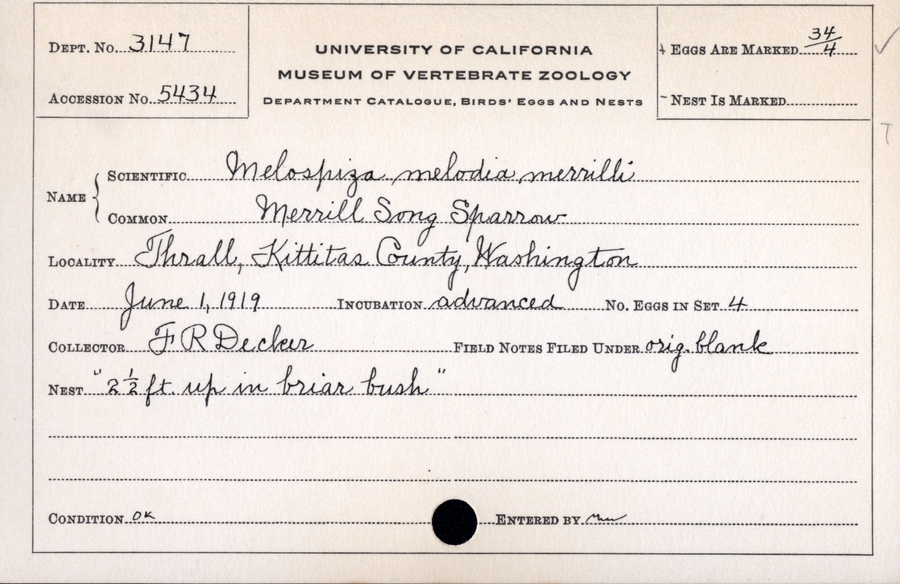 Dept. No. 3147
Accession No. 5434
UNIVERSITY OF CALIFORNIA
MUSEUM OF VERTEBRATE ZOOLOGY
Department Catalogue, Birds' Eggs and Nests
Eggs Are Marked 34/4
Nest Is Marked
Name
Scientific Melospiza melodia merrilli
Common Merrill Song Sparrow
Locality Thrall, Kittitas County, Washington
Date June 1, 1919 Incubation advanced No. Eggs in Set 4
Collector F R Decker Field Notes Filed Under orig. blank
Nest "2 1/2 ft. up in briar bush"
Condition OK Entered by